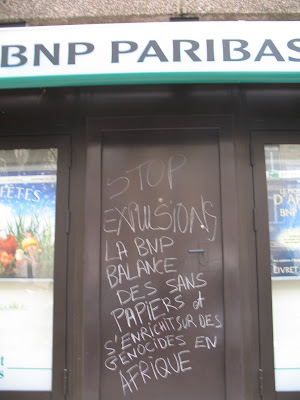 BNP PARIBAS
STOP
EXPULSIONS
LA BNP
BALANCE
DES SANS
PAPIERS et
S'ENRICHIT SUR DES
GENOCIDES EN
AFRIQUE
FÊTES
LIVRET